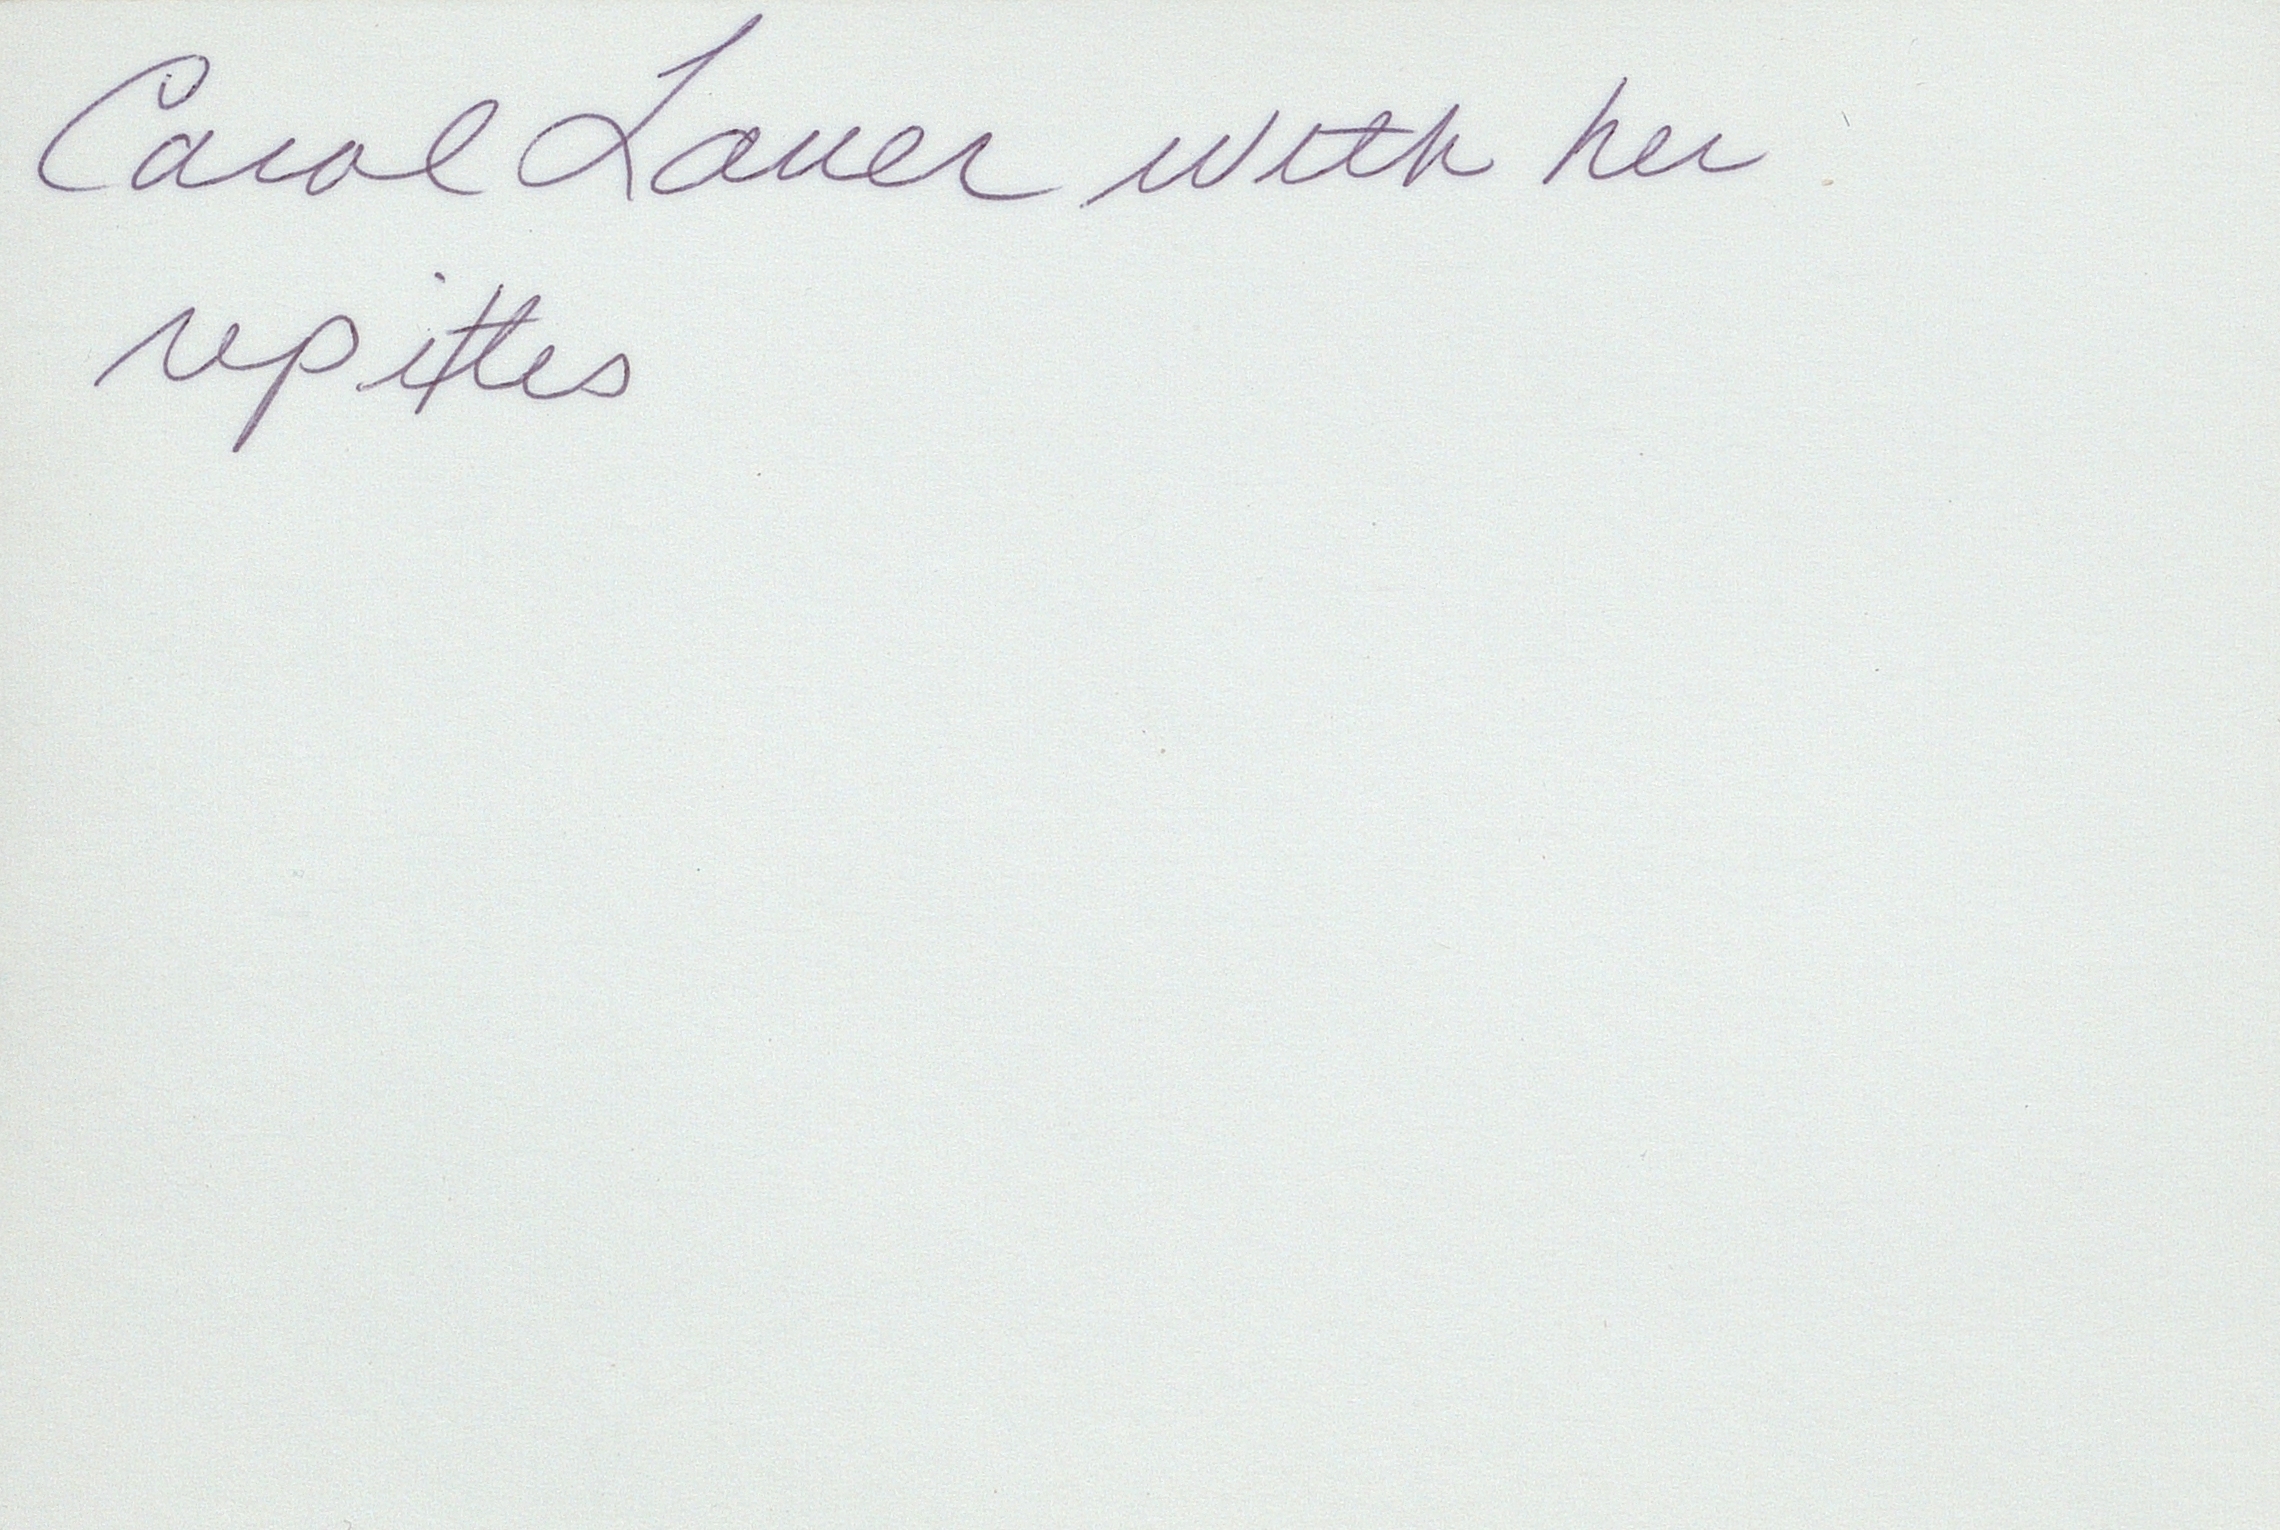 Carol Lauer with her
repittes